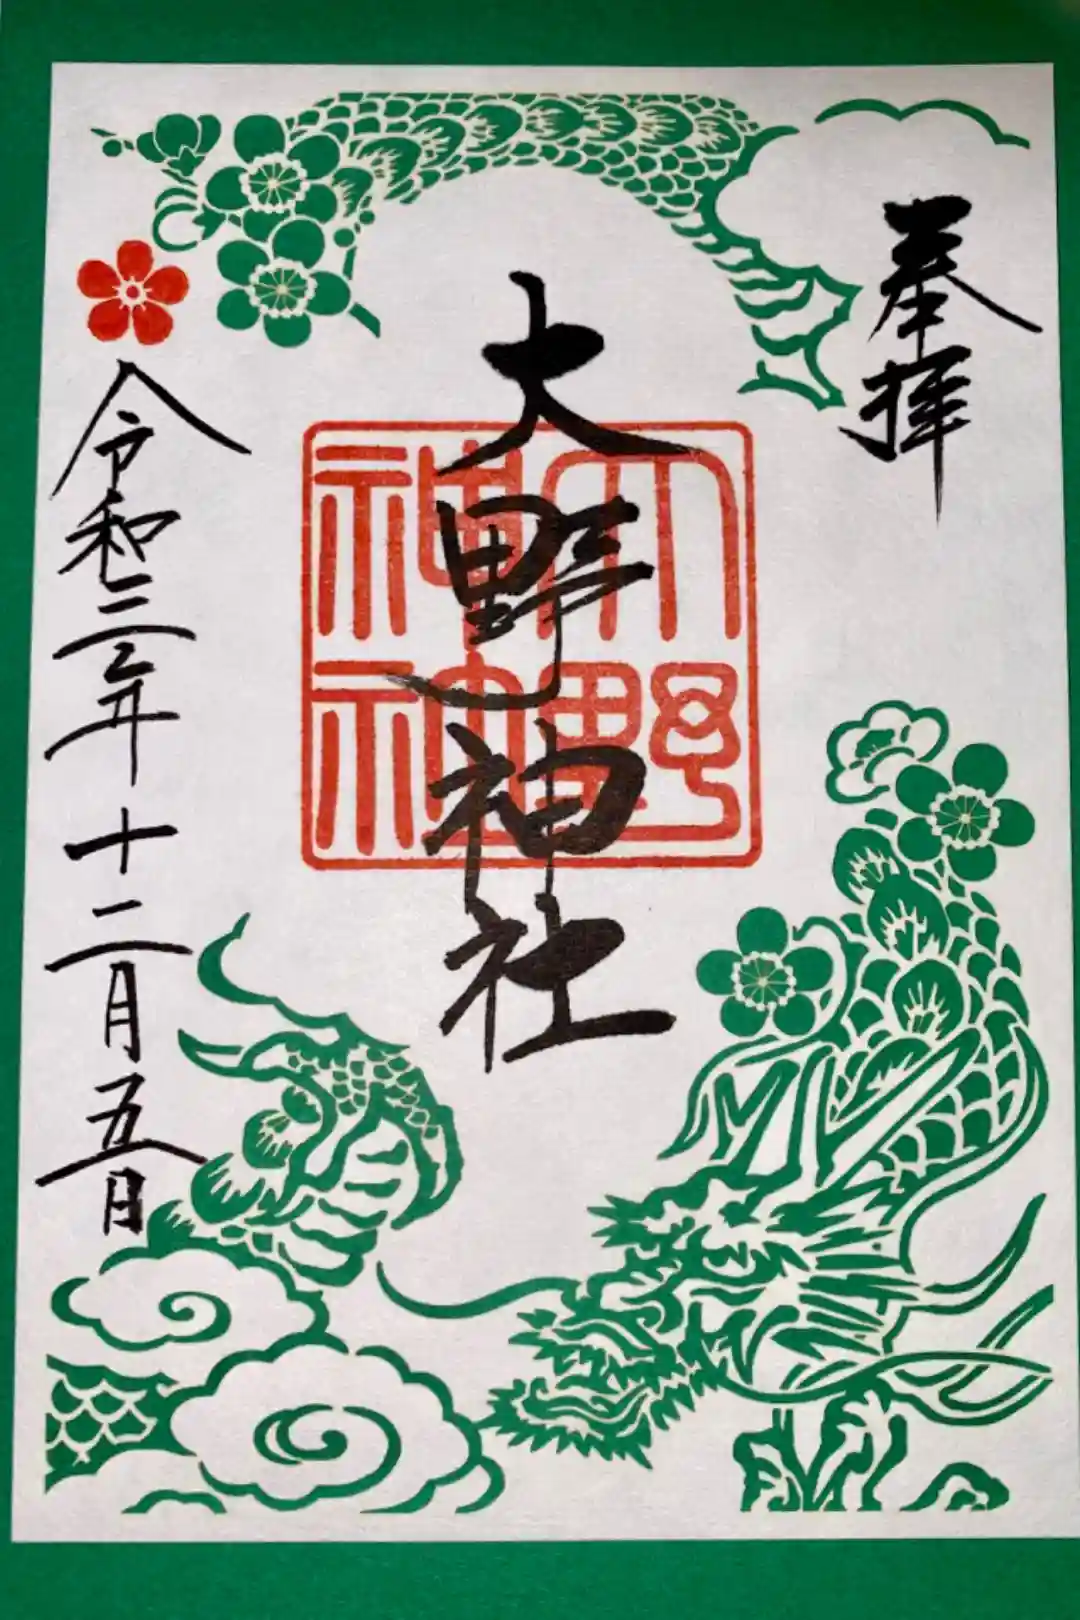 奉拝
大野神社
大野神社
令和三年十二月五日